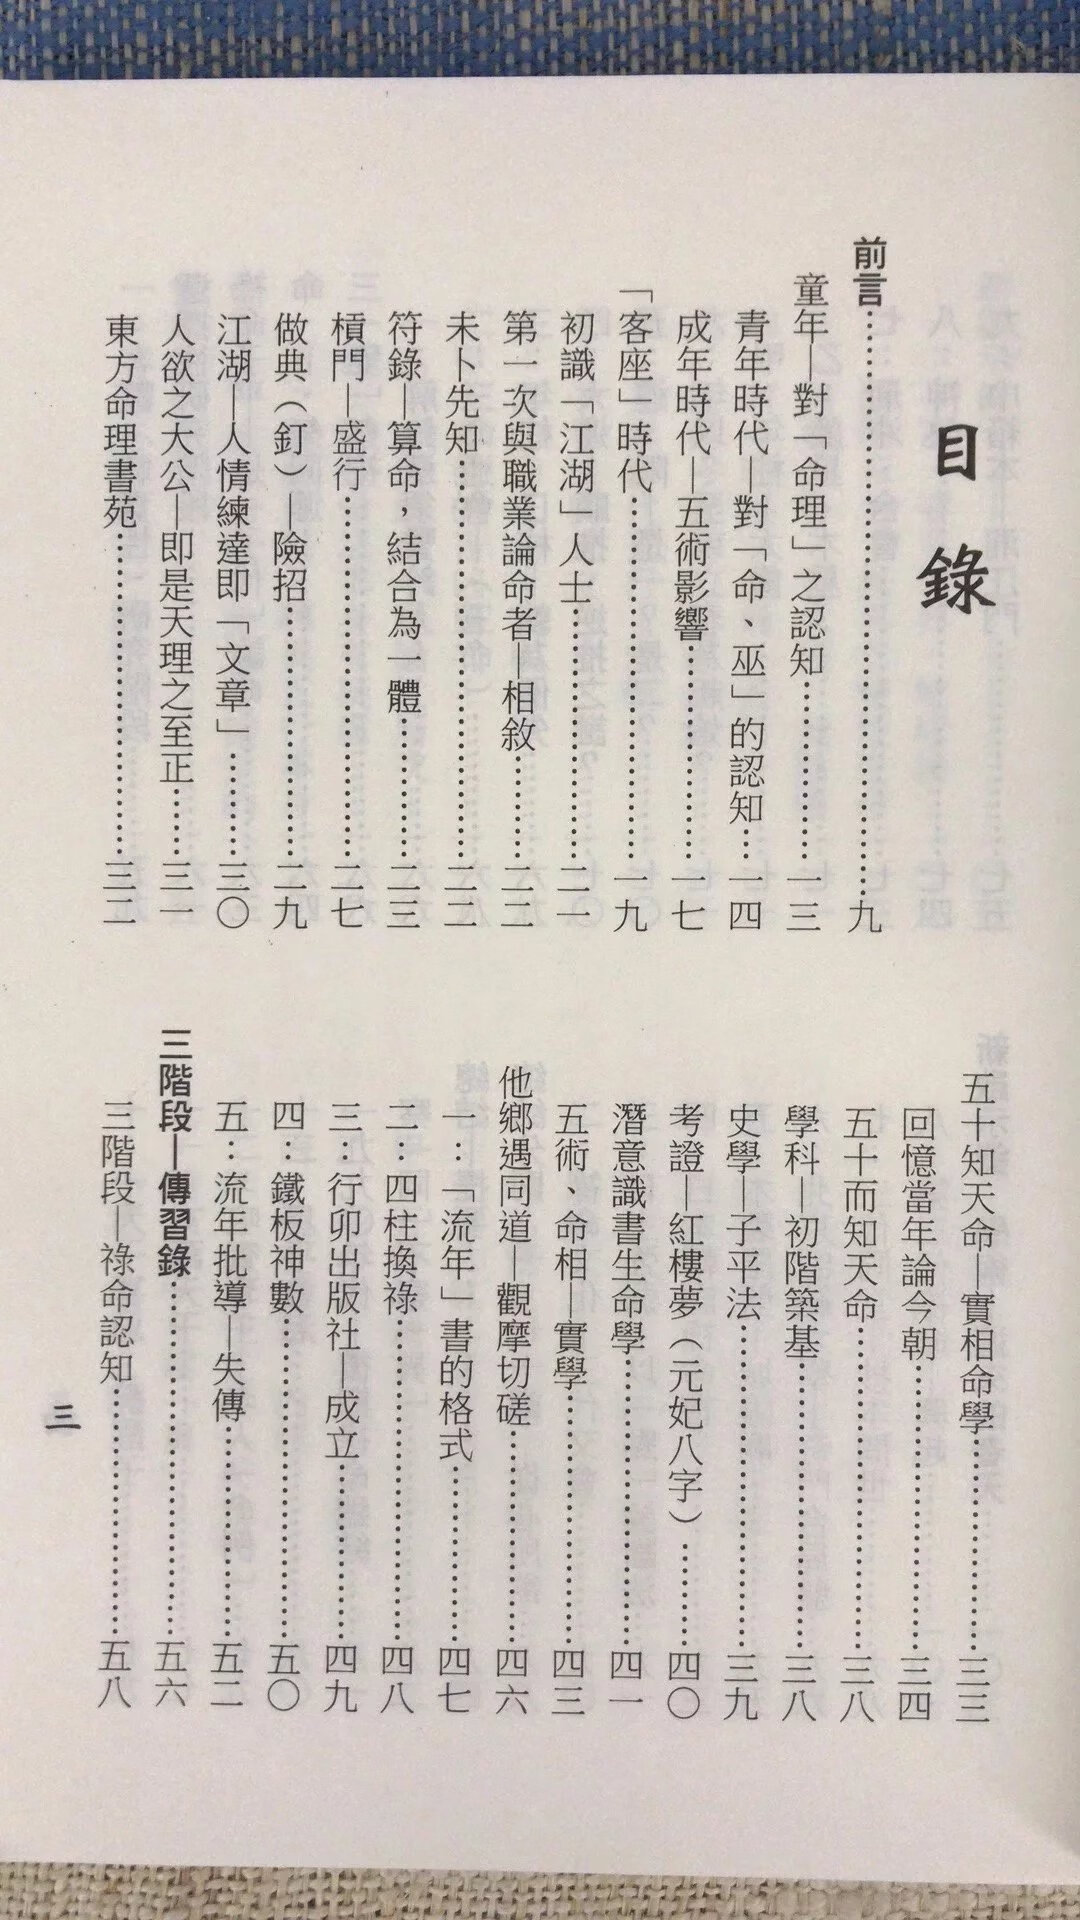 目錄
前言……九
童年—對「命理」之認知……一三
青年時代—對「命、巫」的認知……一四
成年時代—五術影響……一七
「客座」時代……一九
初識「江湖」人士……二一
第一次與職業論命者—相敘……二二
未卜先知……二二
符錄—算命，結合為一體……二三
槓門—盛行……二七
做典（釘）—險招……二九
江湖—人情練達即「文章」……三〇
人欲之大公—即是天理之至正……三一
東方命理書苑……三二
五十知天命—實相命學……三三
回憶當年論今朝……三四
五十而知天命……三八
學科—初階築基……三八
史學—子平法……三九
考證—紅樓夢（元妃八字）……四〇
潛意識書生命學……四一
五術、命相—實學……四三
他鄉遇同道—觀摩切磋……四六
一：「流年」書的格式……四七
二：四柱換祿……四八
三：行卯出版社—成立……四九
四：鐵板神數……五〇
五：流年批導—失傳……五二
三階段—傳習錄……五六
三階段—祿命認知……五八
三